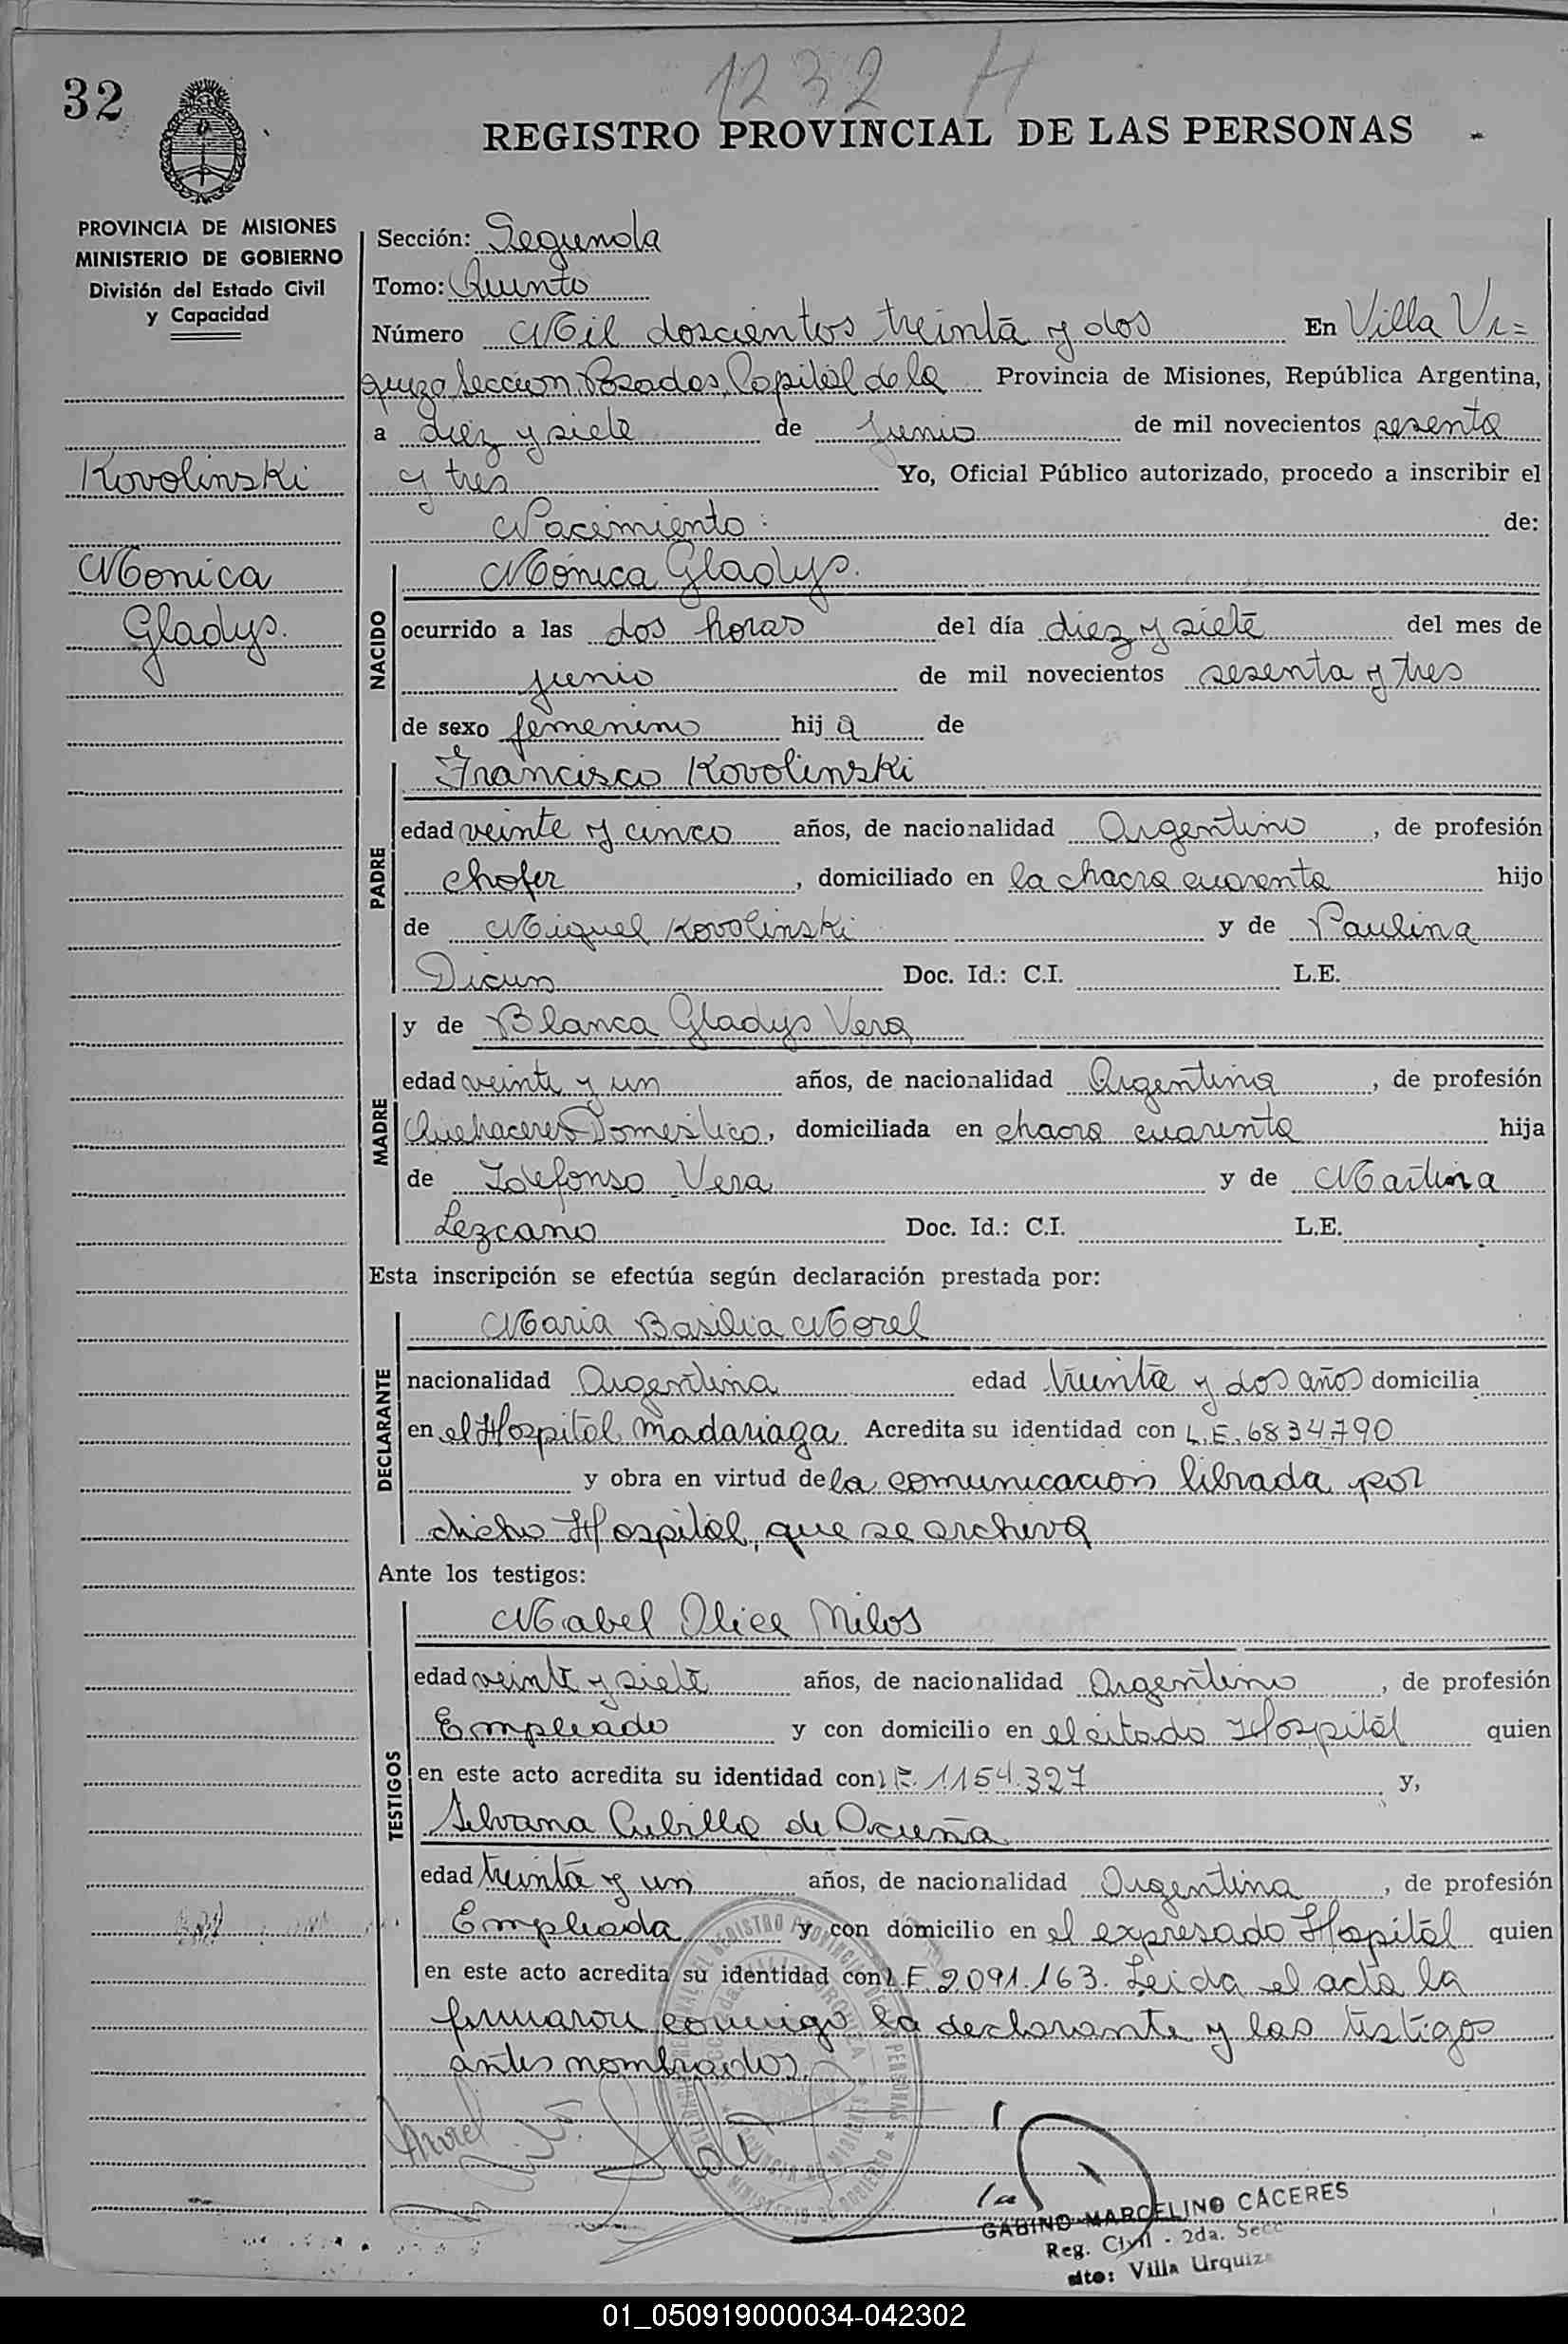 1232 H
32
REGISTRO PROVINCIAL DE LAS PERSONAS
PROVINCIA DE MISIONES
MINISTERIO DE GOBIERNO
División del Estado Civil
y Capacidad
Kovolinski
Monica
Gladys.
Sección: Segunda
Tomo: Quinto
Número Mil doscientos treinta y dos En Villa Ur=
quiza Seccion Posadas, Capital de la Provincia de Misiones, República Argentina,
a diez y siete de junio de mil novecientos sesenta
y tres Yo, Oficial Público autorizado, procedo a inscribir el
Nacimiento: de:
NACIDO
Mónica Gladys.
ocurrido a las dos horas del día diez y siete del mes de
junio de mil novecientos sesenta y tres
de sexo femenino hija de
PADRE
Francisco Kovolinski
edad veinte y cinco años, de nacionalidad Argentino, de profesión
chofer, domiciliado en la chacra cuarenta hijo
de Miguel Kovolinski y de Paulina
Dicun Doc. Id.: C.I. L.E.
MADRE
y de Blanca Gladys Vera
edad veinte y un años, de nacionalidad Argentina, de profesión
Quehaceres Domestico, domiciliada en chacra cuarenta hija
de Ildefonso Vera y de Martina
Lezcano Doc. Id.: C.I. L.E.
Esta inscripción se efectúa según declaración prestada por:
DECLARANTE
Maria Basilia Morel
nacionalidad Argentina edad treinta y dos años domicilia
en el Hospital Madariaga Acredita su identidad con L.E. 6834790
y obra en virtud de la comunicacion librada por
dicho Hospital, que se archiva
Ante los testigos:
TESTIGOS
Mabel Alice Milos
edad veinte y siete años, de nacionalidad Argentino, de profesión
Empleado y con domicilio en el citado Hospital quien
en este acto acredita su identidad con L.E. 1154.327 y,
Silvana Cubilla de Acuña
edad treinta y un años, de nacionalidad Argentina, de profesión
Empleada y con domicilio en el expresado Hospital quien
en este acto acredita su identidad con L.E 2.091.163. Leida el acta la
firmaron conmigo la declarante y las testigos
antes nombrados.
Morel
GABINO MARCELINO CÁCERES
Reg. Civil - 2da. Secc
Villa Urquiza
01_050919000034-042302